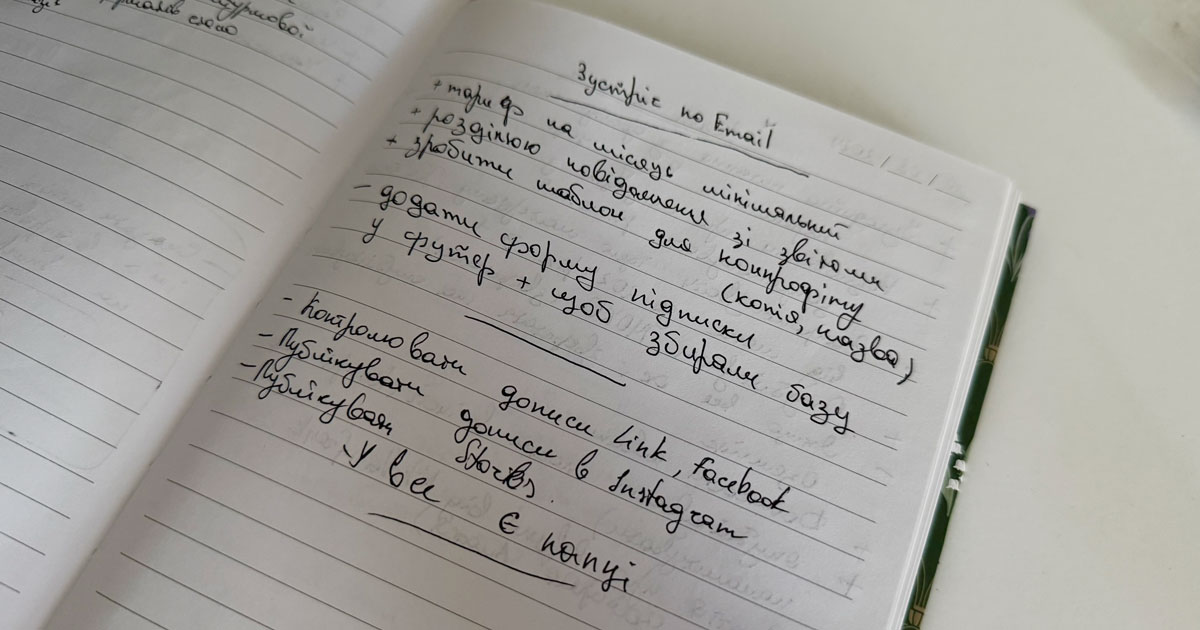 Зустріч по Email
+ тариф на місяць мінімальний
+ розділюю повідомлення зі звітами
+ зробити шаблон для нонпрофіту
(копія, назва)
- додати форму підписки
у футер + щоб збирали базу
- Контролювати дописи Link, Facebook
- Публікувати дописи в Instagram
- Публікувати Stories.
У все є папці